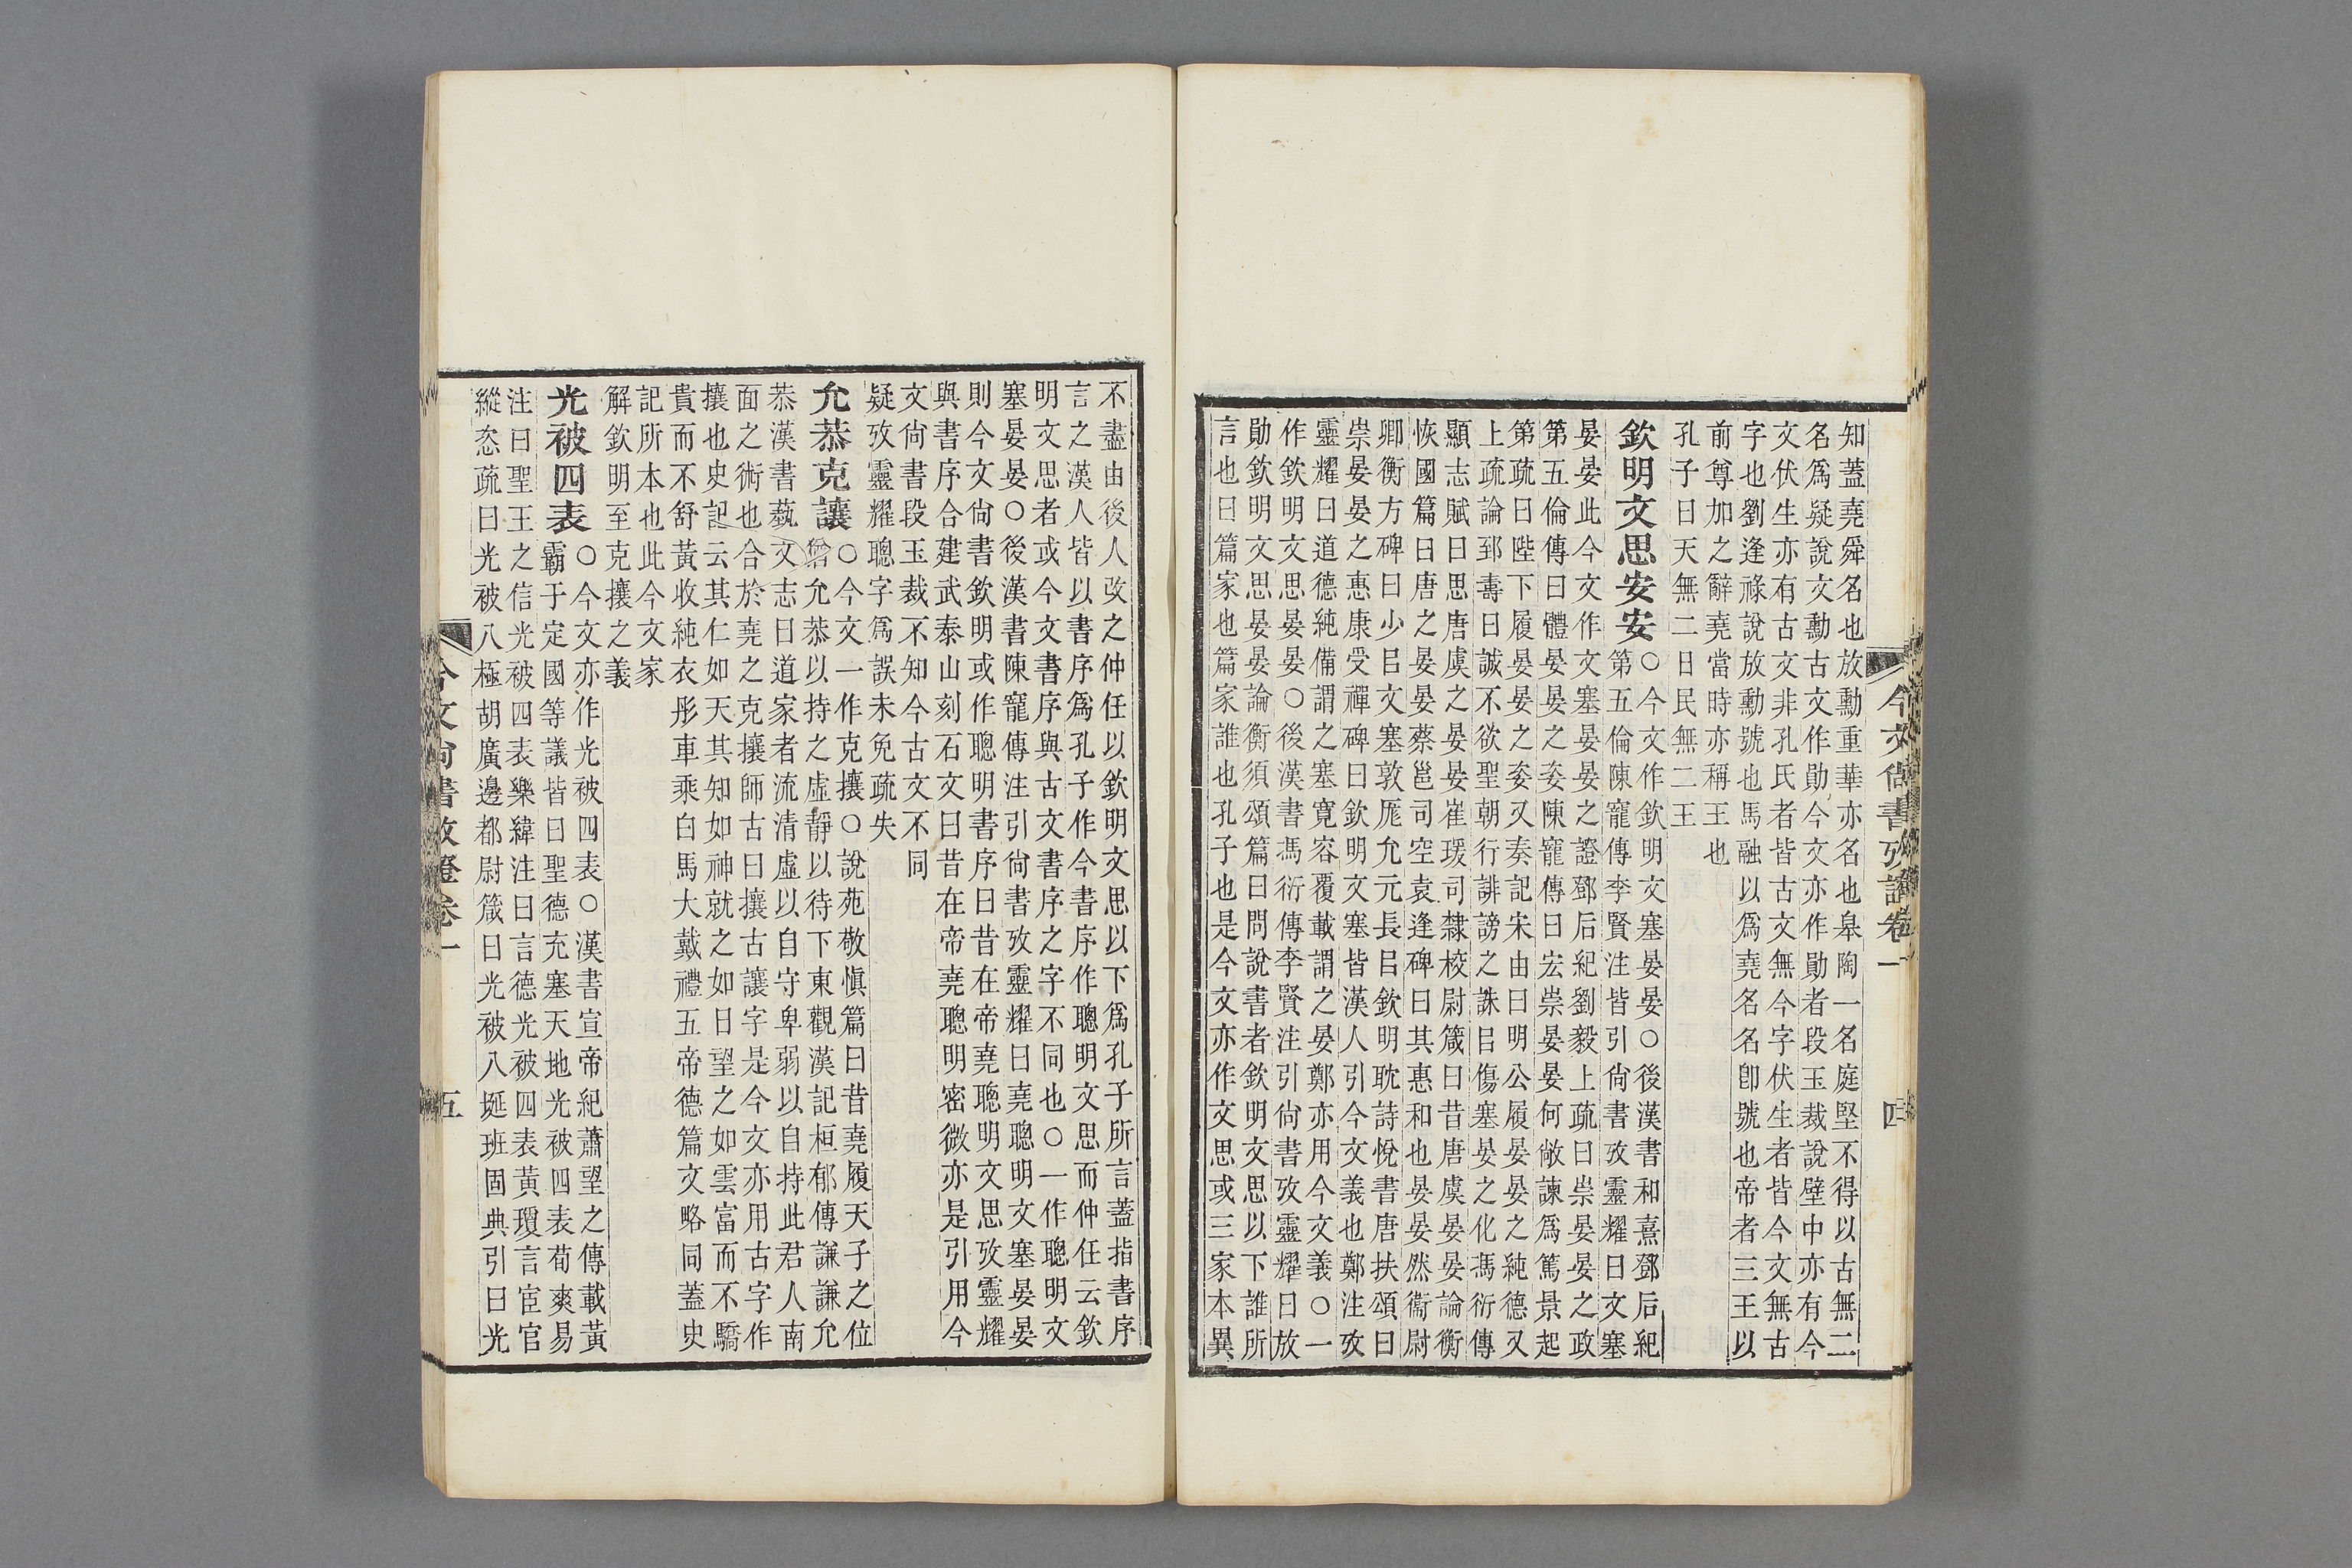 今文尚書攷證卷一
四
知蓋堯舜名也放勳重華亦名也皋陶一名庭堅不得以古無二
名爲疑說文勳古文作勛今文亦作勛者段玉裁說壁中亦有今
文伏生亦有古文非孔氏者皆古文無今字伏生者皆今文無古
字也劉逢祿說放勳號也馬融以爲堯名名卽號也帝者三王以
前尊加之辭堯當時亦稱王也
孔子曰天無二日民無二王
欽明文思安安
○今文作欽明文塞晏晏○後漢書和熹鄧后紀
第五倫陳寵傳李賢注皆引尙書攷靈耀曰文塞
晏晏此今文作文塞晏晏之證鄧后紀劉毅上疏曰崇晏晏之政
第五倫傳曰體晏晏之姿陳寵傳曰宏崇晏晏何敞諫爲篤景起
第疏曰陛下履晏晏之姿又奏記宋由曰明公履晏晏之純德又
上疏論郅壽曰誠不欲聖朝行誹謗之誅㠯傷塞晏之化馮衍傳
顯志賦曰思唐虞之晏晏崔瑗司隸校尉箴曰昔唐虞晏晏論衡
恢國篇曰唐之晏晏蔡邕司空袁逢碑曰其惠和也晏晏然衞尉
卿衡方碑曰少㠯文塞敦厖允元長㠯欽明耽詩悅書唐扶頌曰
崇晏晏之惠康受禪碑曰欽明文塞皆漢人引今文義也鄭注攷
靈耀曰道德純備謂之塞寬容覆載謂之晏鄭亦用今文義○一
作欽明文思晏晏○後漢書馮衍傳李賢注引尙書攷靈耀曰放
勛欽明文思晏晏論衡須頌篇曰問說書者欽明文思以下誰所
言也曰篇家也篇家誰也孔子也是今文亦作文思或三家本異
不盡由後人改之仲任以欽明文思以下爲孔子所言蓋指書序
言之漢人皆以書序爲孔子作今書序作聰明文思而仲任云欽
明文思者或今文書序與古文書序之字不同也○一作聰明文
塞晏晏○後漢書陳寵傳注引尙書攷靈耀曰堯聰明文塞晏晏
則今文尙書欽明或作聰明書序曰昔在帝堯聰明文思攷靈耀
與書序合建武泰山刻石文曰昔在帝堯聰明密微亦是引用今
文尙書段玉裁不知今古文不同
疑攷靈耀聰字爲誤未免疏失
允恭克讓
○今文一作克攘○說苑敬愼篇曰昔堯履天子之位
猶允恭以持之虛靜以待下東觀漢記桓郁傳謙謙允
恭漢書藝文志曰道家者流清虛以自守卑弱以自持此君人南
面之術也合於堯之克攘師古曰攘古讓字是今文亦用古字作
攘也史記云其仁如天其知如神就之如日望之如雲富而不驕
貴而不舒黃收純衣彤車乘白馬大戴禮五帝德篇文略同蓋史
記所本也此今文家
解欽明至克攘之義
光被四表
○今文亦作光被四表○漢書宣帝紀蕭望之傳載黃
霸于定國等議皆曰聖德充塞天地光被四表荀爽易
注曰聖王之信光被四表樂緯注曰言德光被四表黃瓊言宦官
縱恣疏曰光被八極胡廣邊都尉箴曰光被八埏班固典引曰光
今文尙書攷證卷一
五